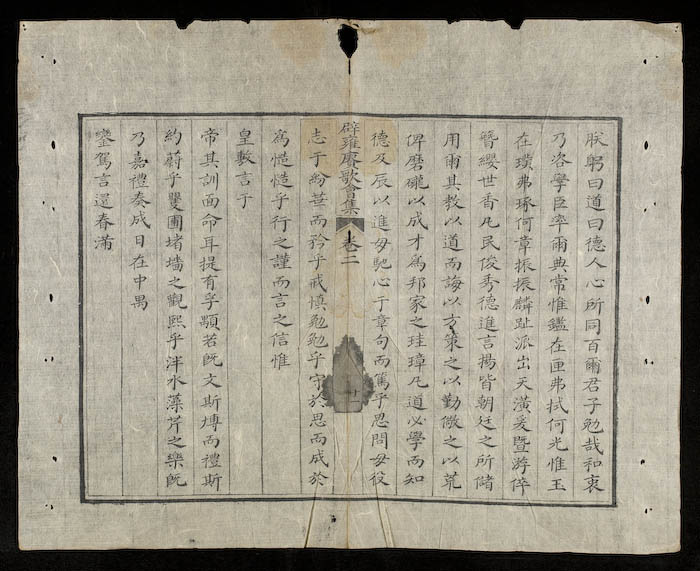 朕躬曰道曰德人心所同百爾君子勉哉和衷
乃洛學臣率爾典常惟鑑在匣弗拭何光惟玉
在璞弗琢何章振振麟趾派出天潢爰曁游倅
簪纓世胄凡民俊秀德進言揚皆朝廷之所儲
用爾其教以道而誨以方策之以勤儆之以荒
俾磨礲以成才爲邦家之珪璋凡道必學而知
德及辰以進毋馳心于章句而篤乎思問毋役
辟雍賡歌會集 卷二
志于紛華而矜乎戒愼勉勉乎守於思而成於
爲慥慥乎行之謹而言之信惟
皇敷言于
帝其訓面命耳提有孚顒若旣文斯博而禮斯
約蔚乎瞿圃堵墻之觀熙乎泮水藻芹之樂旣
乃嘉禮奏成日在中禺
鑾駕言還春滿